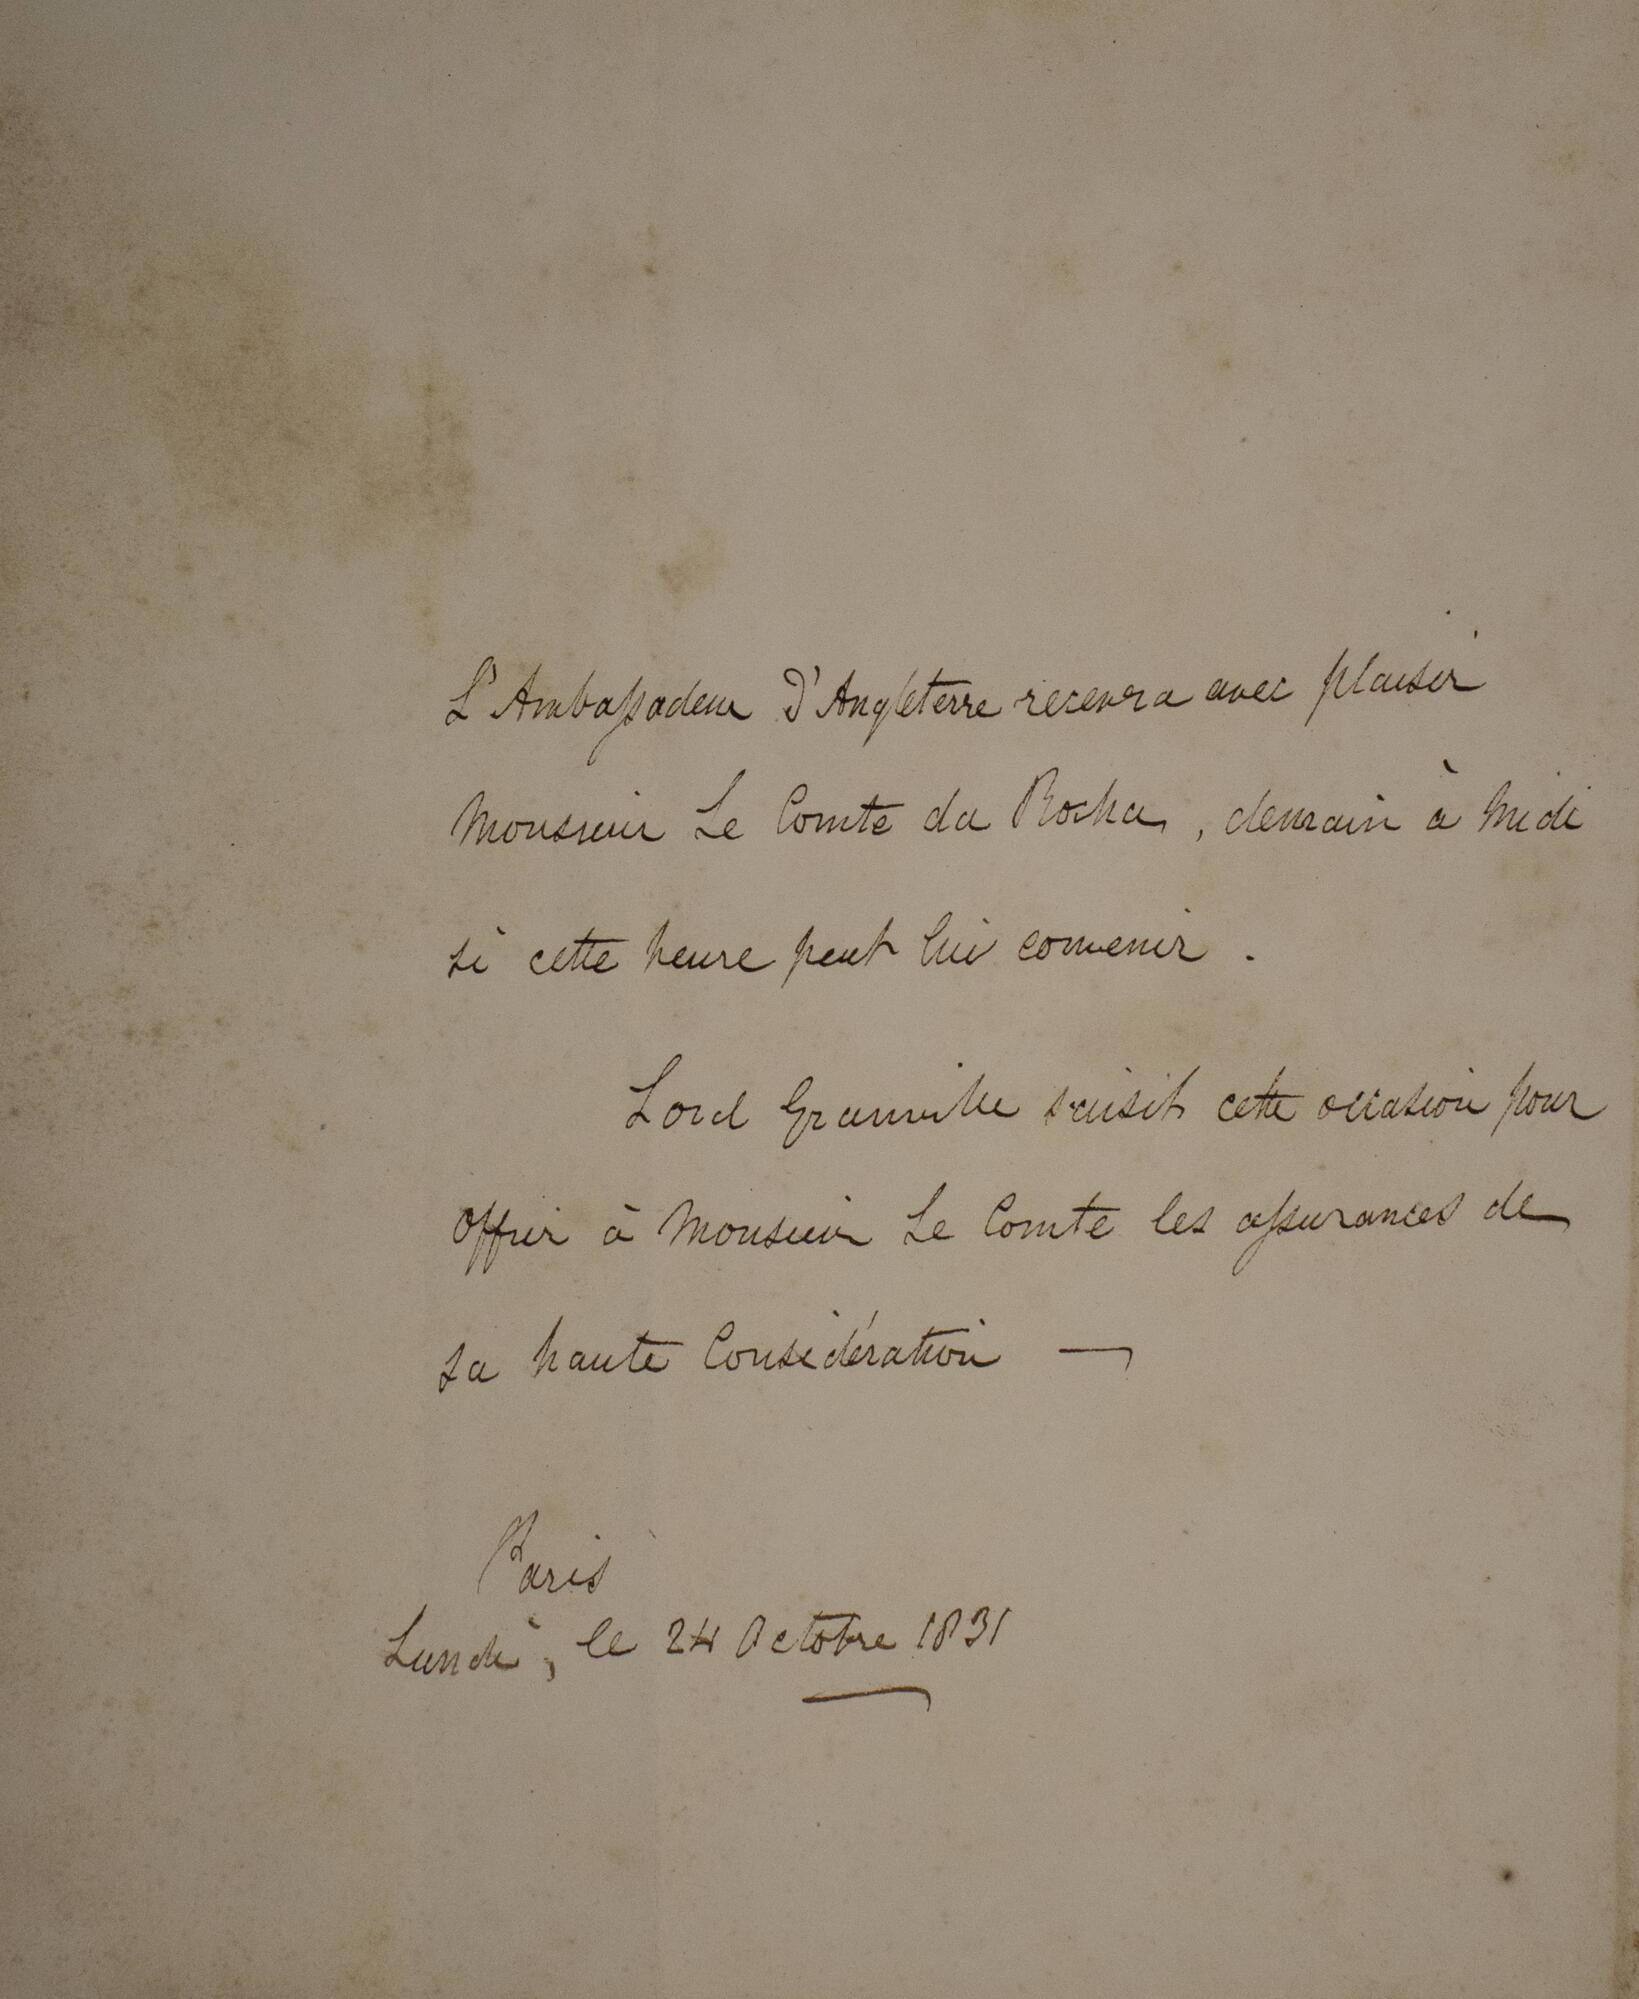 L'Ambassadeur D'Angleterre recevra avec plaisir
Monsieur Le Comte da Rocha, demain à Midi
si cette heure peut lui convenir.
Lord Granville saisit cette occasion pour
offrir à Monsieur Le Comte les assurances de
sa haute Considération —
Paris
Lundi, le 24 Octobre 1831